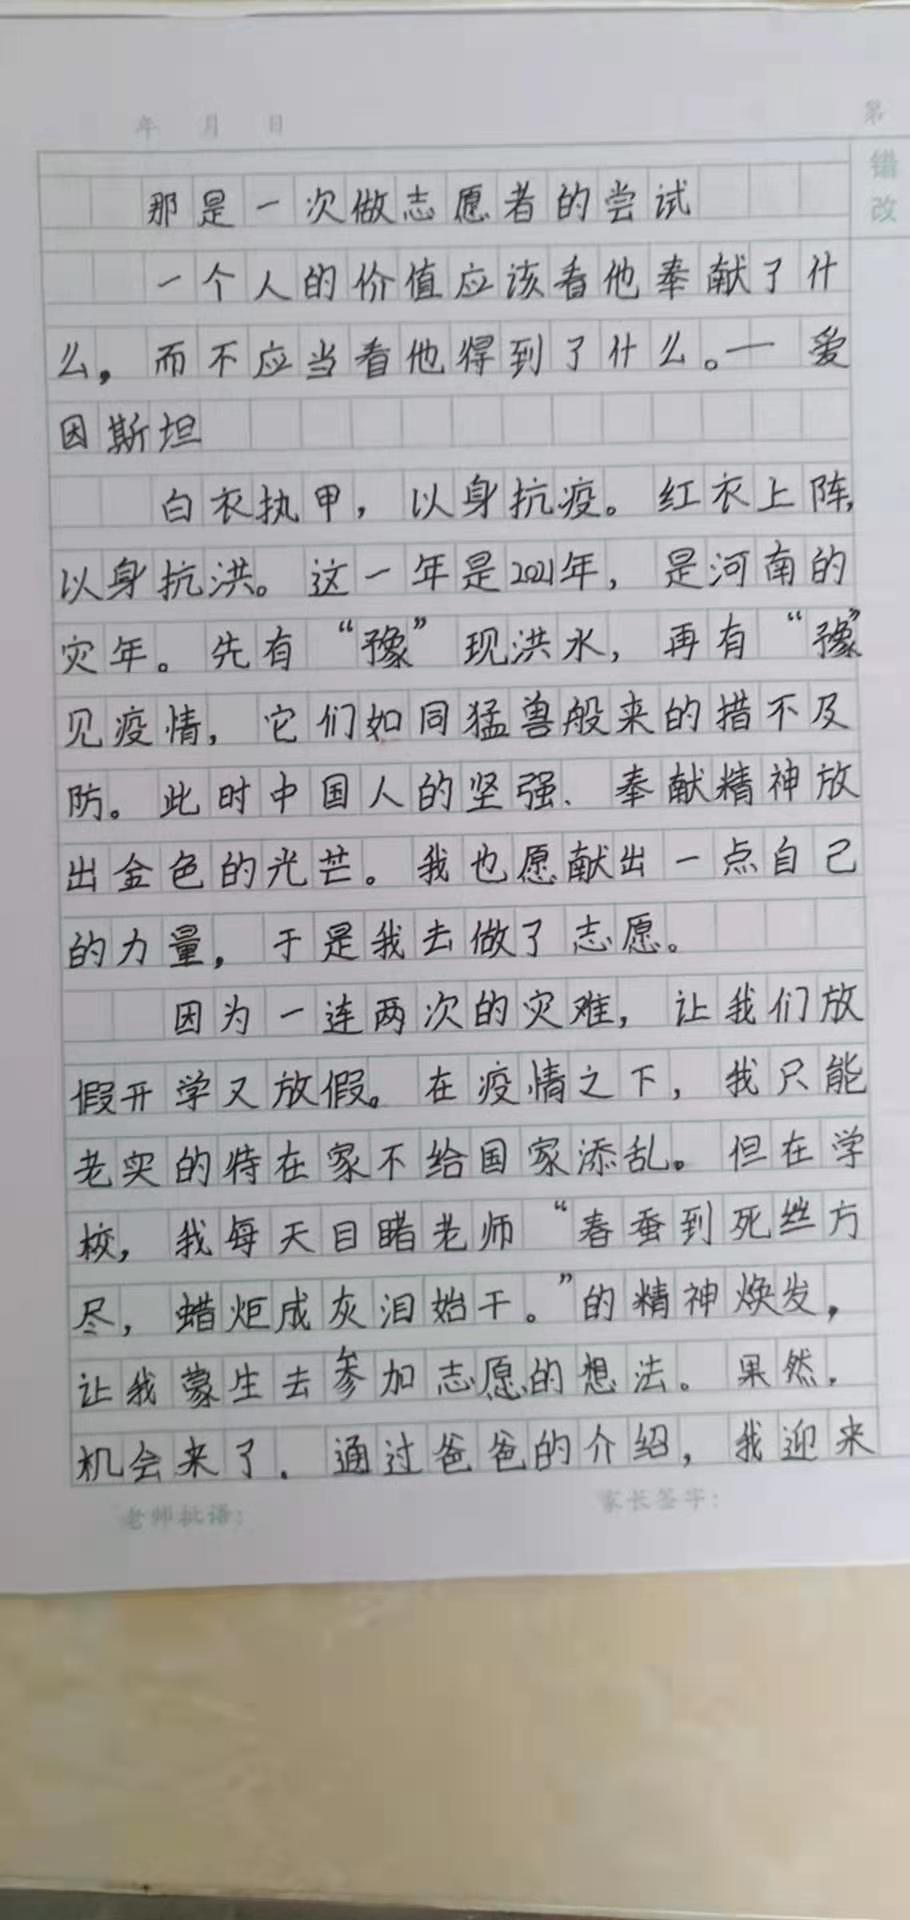 年 月 日 第
错
改
那是一次做志愿者的尝试
一个人的价值应该看他奉献了什
么，而不应当看他得到了什么。—爱
因斯坦
白衣执甲，以身抗疫。红衣上阵，
以身抗洪。这一年是2021年，是河南的
灾年。先有“豫”现洪水，再有“豫”
见疫情，它们如同猛兽般来的措不及
防。此时中国人的坚强、奉献精神放
出金色的光芒。我也愿献出一点自己
的力量，于是我去做了志愿。
因为一连两次的灾难，让我们放
假开学又放假。在疫情之下，我只能
老实的待在家不给国家添乱。但在学
校，我每天目睹老师“春蚕到死丝方
尽，蜡炬成灰泪始干。”的精神焕发，
让我蒙生去参加志愿的想法。果然，
机会来了．通过爸爸的介绍，我迎来
老师批语： 家长签字：